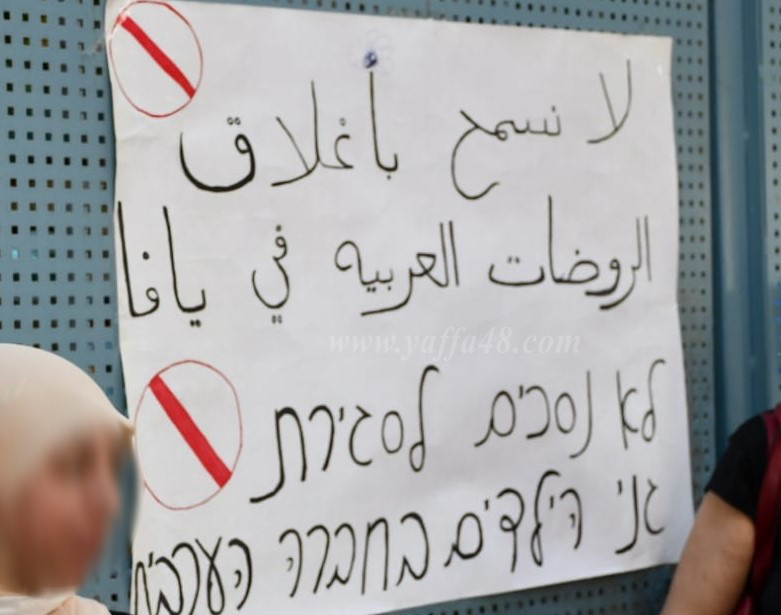 لا نسمح بأغلاق
الروضات العربيه في يافا
www.yaffa48.com
לא נסכים לסגירת
גני הילדים בחברה הערבית